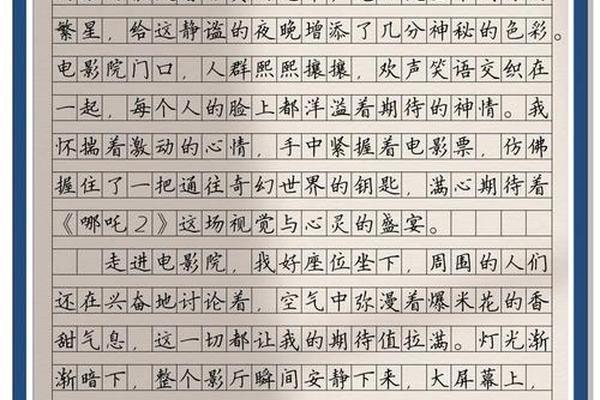 繁星，给这静谧的夜晚增添了几分神秘的色彩。
电影院门口，人群熙熙攘攘，欢声笑语交织在
一起，每个人的脸上都洋溢着期待的神情。我
怀揣着激动的心情，手中紧握着电影票，仿佛
握住了一把通往奇幻世界的钥匙，满心期待着
《哪吒2》这场视觉与心灵的盛宴。
走进电影院，我好座位坐下，周围的人们
还在兴奋地讨论着，空气中弥漫着爆米花的香
甜气息，这一切都让我的期待值拉满。灯光渐
渐暗下，整个影厅瞬间安静下来，大屏幕上，